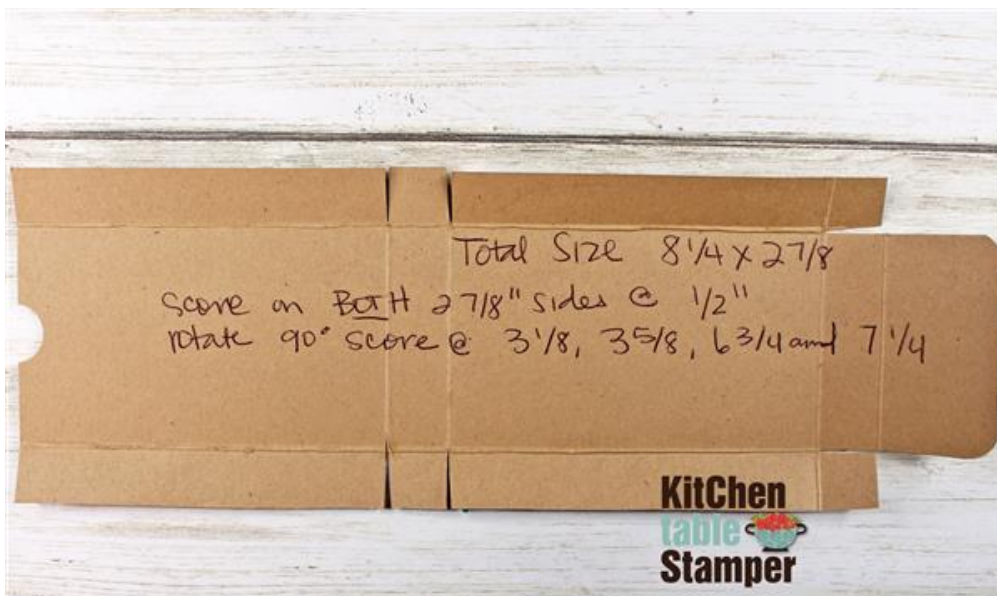 Total Size 8 1/4 x 2 7/8
Score on BOTH 2 7/8" sides @ 1/2"
rotate 90° score @ 3 1/8, 3 5/8, 6 3/4 and 7 1/4
KitChen
table
Stamper